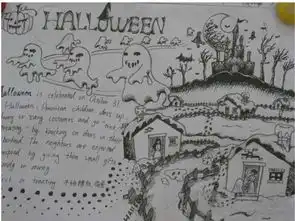 HALLOWEEN
Halloween is celebrated in October 31.
Halloween, American children dress up
funny or scary costumes and go trick or
treating by knocking on doors in their
neighborhood. The neighbors are expected
respond by giving them small gifts
or money
or treating 不给糖就捣蛋